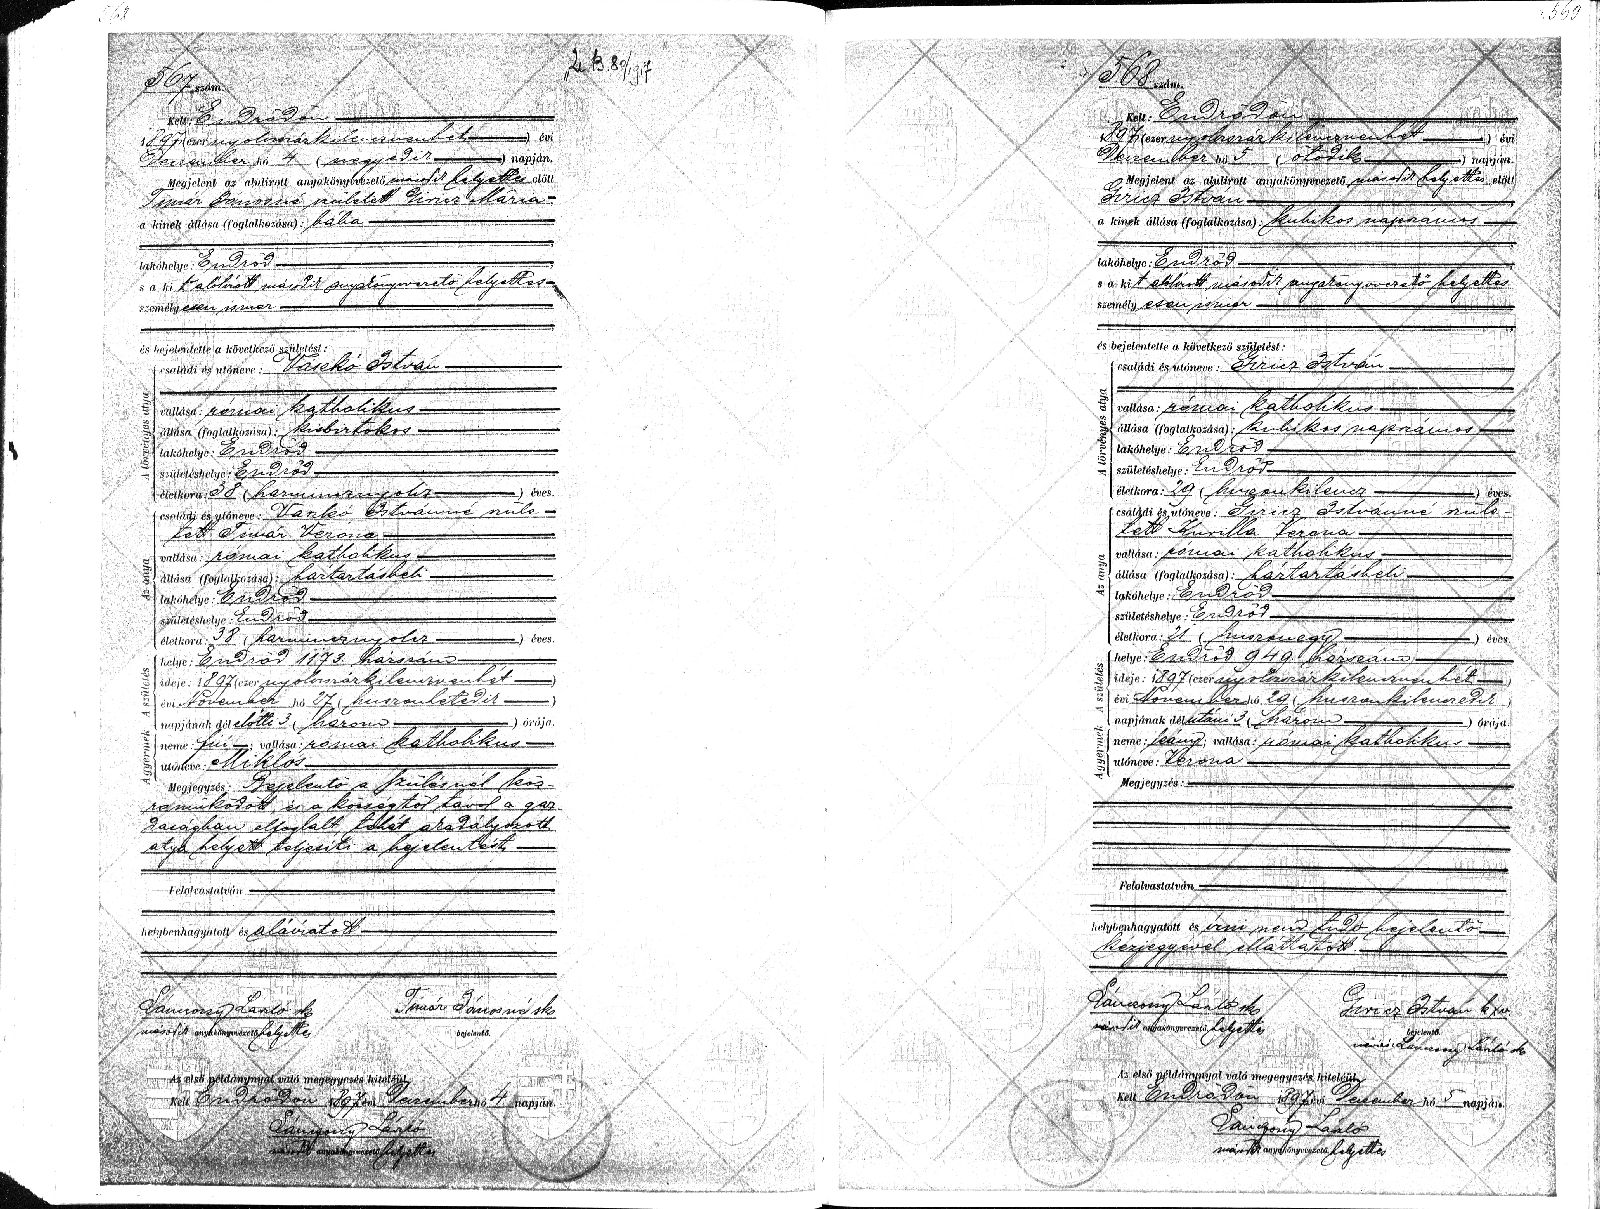 567 szám.
Kelt: Endrődön
1897 (ezernyolcszázkilencvenhét) évi
December hó 4 (negyedik) napján.
Megjelent az alulirott anyakönyvezető második helyettes előtt
Timár Jánosné született Giricz Mária
a kinek állása (foglalkozása): bába
lakóhelye: Endrőd
s a kit alólirott második anyakönyvvezető helyettes
személyesen ismer
és bejelentette a következő születést:
A törvényes atya
családi és utóneve: Vaskó István
vallása: római katholikus
állása (foglalkozása): kisbirtokos
lakóhelye: Endrőd
születéshelye: Endrőd
életkora: 38 (harmincznyolcz) éves.
Az anya
családi és utóneve: Vaskó Istvánné szüle-
tett Timár Verona
vallása: római katholikus
állása (foglalkozása): háztartásbeli
lakóhelye: Endrőd
születéshelye: Endrőd
életkora: 38 (harmincznyolcz) éves.
A gyermek A születés
helye: Endrőd 1173. házszám
ideje: 1897 (ezernyolcszázkilencvenhét)
évi November hó 27 (huszonhetedik)
napjának délelőtti 3 (három) órája.
neme: fiú; vallása: római katholikus
utóneve: Miklós
Megjegyzés: Bejelentő a szülésnél köz-
reműködött és a községtől távol a gaz-
daságban elfoglalt tehát akadályozott
atya helyett teljesíti a bejelentést.
Felolvastatván
helybenhagyatott és aláiratott
László sk Timár Jánosné sk
második anyakönyvvezető helyettes bejelentő.
Az első példánynyal való megegyezés hiteléül
Kelt Endrődön 1897 évi December hó 4 napján.
László
második anyakönyvvezető helyettes
568 szám.
Kelt: Endrődön
1897 (ezernyolcszázkilencvenhét) évi
December hó 5 (ötödik) napján.
Megjelent az alulirott anyakönyvvezető második helyettes előtt
Giricz István
a kinek állása (foglalkozása): kubikos napszámos
lakóhelye: Endrőd
s a kit alólirott második anyakönyvvezető helyettes
személyesen ismer
és bejelentette a következő születést:
A törvényes atya
családi és utóneve: Giricz István
vallása: római katholikus
állása (foglalkozása): kubikos napszámos
lakóhelye: Endrőd
születéshelye: Endrőd
életkora: 29 (huszonkilencz) éves.
Az anya
családi és utóneve: Giricz Istvánné szüle-
tett Verona
vallása: római katholikus
állása (foglalkozása): háztartásbeli
lakóhelye: Endrőd
születéshelye: Endrőd
életkora: 21 (huszonegy) éves.
A gyermek A születés
helye: Endrőd 949 házszám
ideje: 1897 (ezernyolcszázkilencvenhét)
évi November hó 29 (huszonkilenczedik)
napjának délutáni 3 (három) órája.
neme: leány; vallása: római katholikus
utóneve: Verona
Megjegyzés:
Felolvastatván
helybenhagyatott és irni nem tudó bejelentő
kézjegyével elláttatott
László sk Giricz István
második anyakönyvvezető helyettes bejelentő.
László sk
Az első példánynyal való megegyezés hiteléül
Kelt Endrődön 1897 évi December hó 5 napján.
László
második anyakönyvvezető helyettes